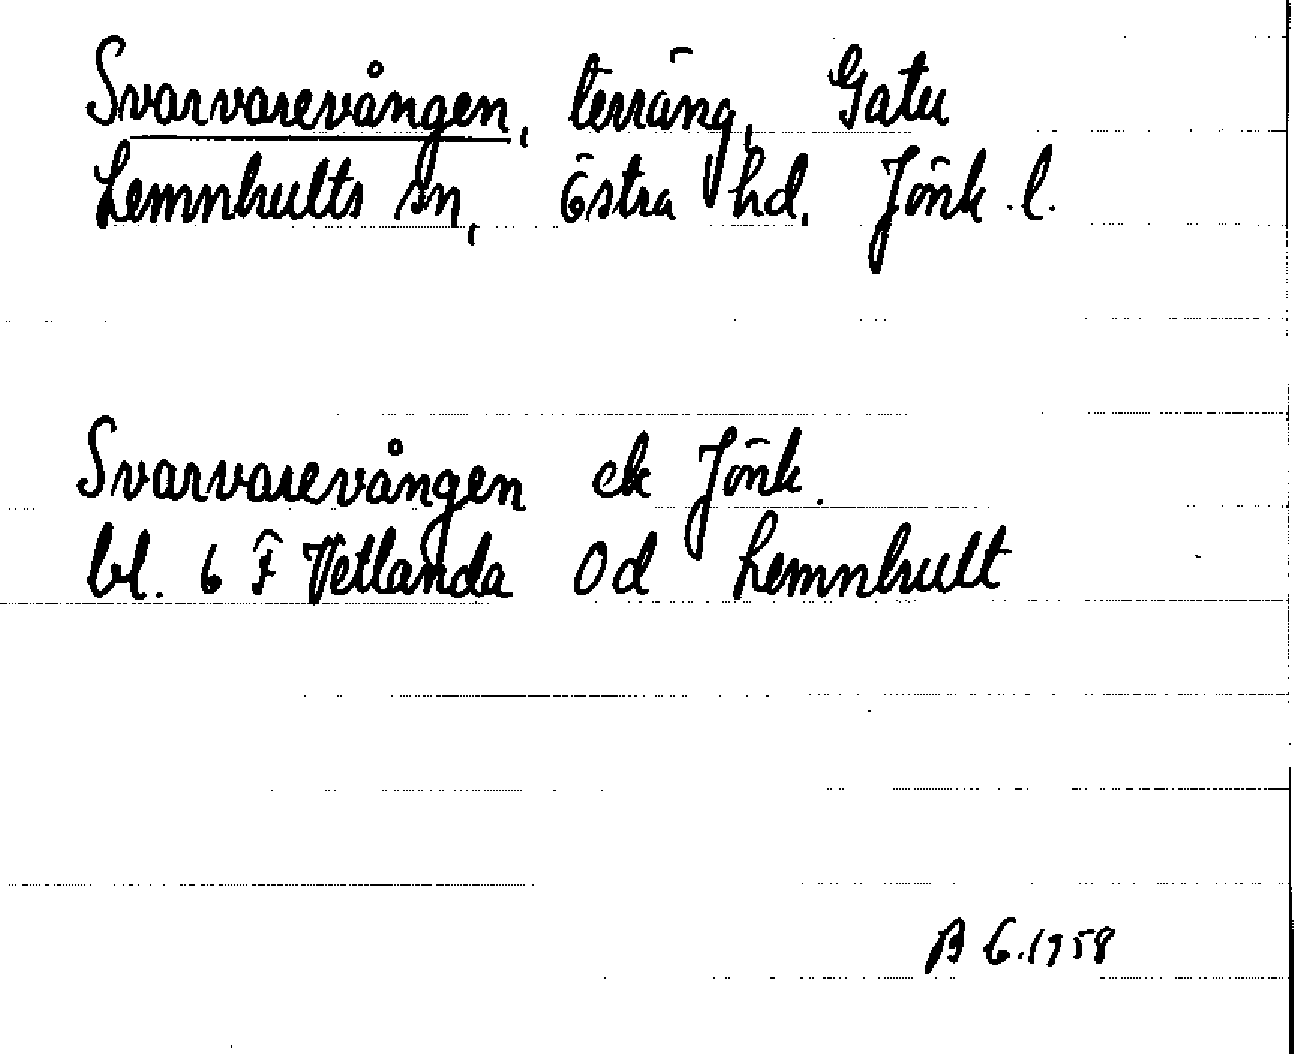 Svarvarevången, terräng, Gatu
Lemnhults sn, Östra hd, Jönk. l.
Svarvarevången ek Jönk.
bl. 6 F Vetlanda Od Lemnhult
B G. 1958